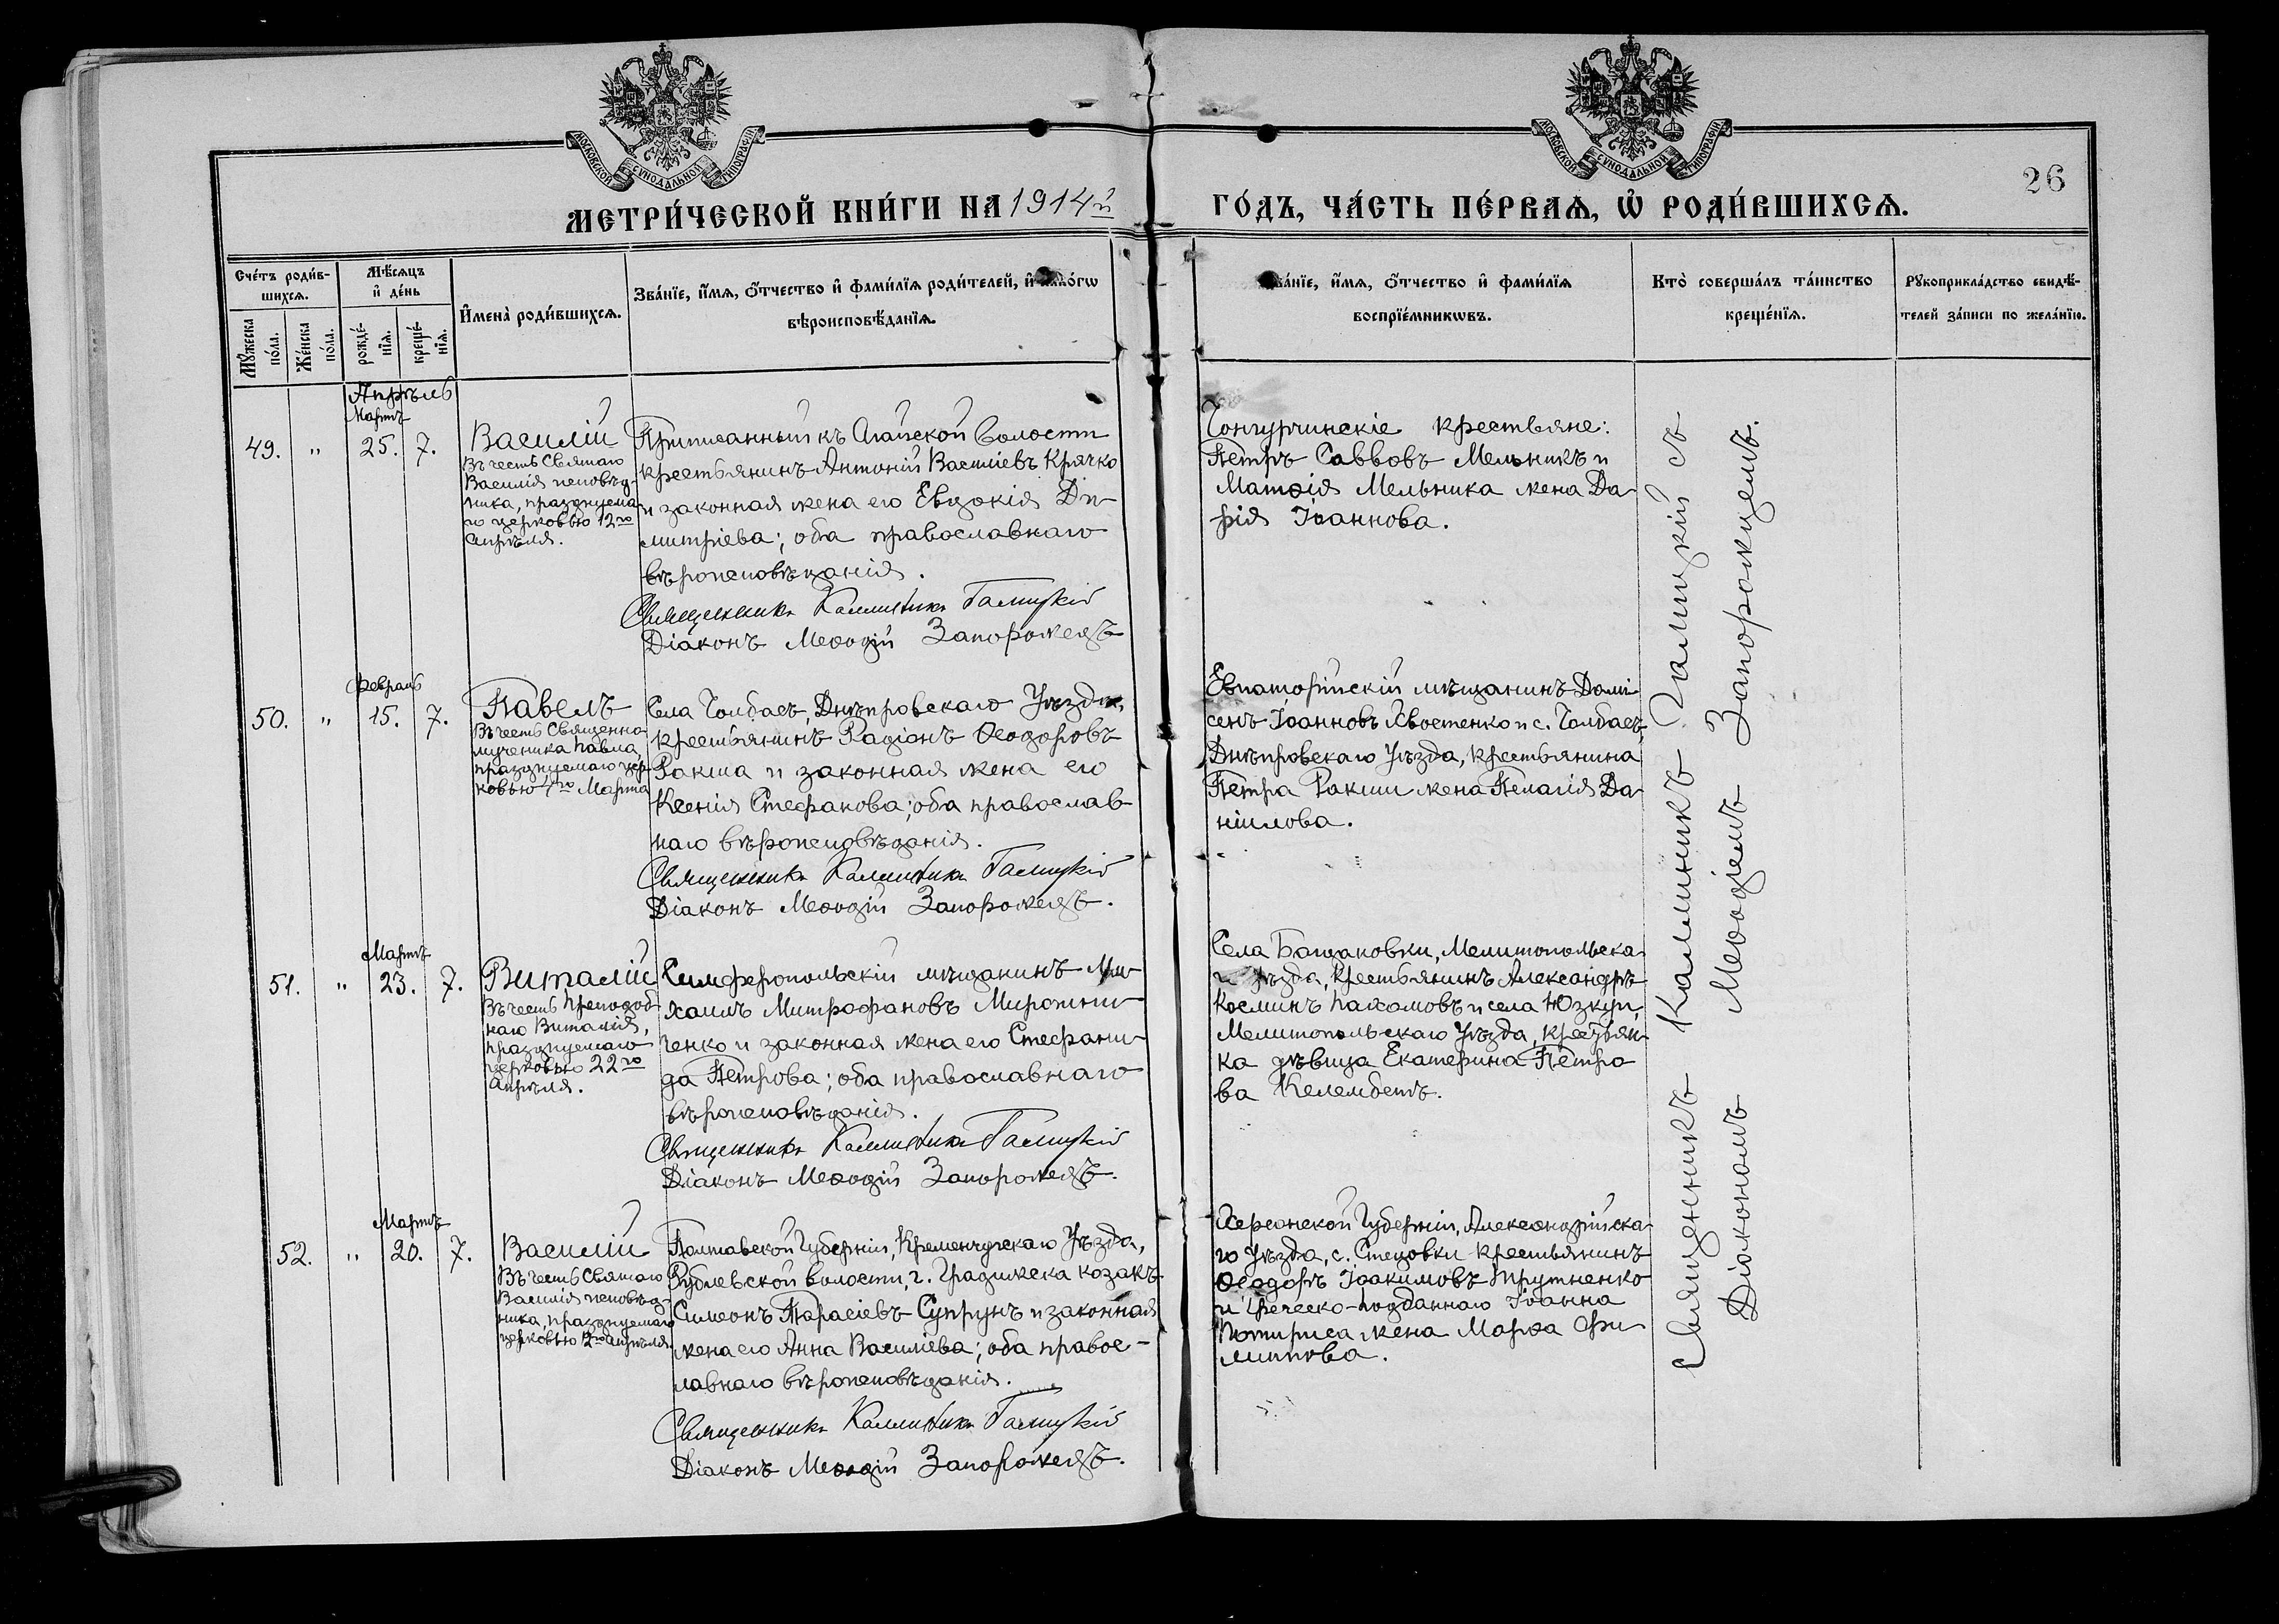 МОСКОВСКОЙ СѴНОДАЛЬНОЙ ТИПОГРАФІИ
МОСКОВСКОЙ СѴНОДАЛЬНОЙ ТИПОГРАФІИ
26
МЕТРИ́ЧЕСКОЙ КНИ́ГИ НА 1914й
ГО́ДЪ, ЧА́СТЬ ПЕ́РВАѦ, Ѡ҆ РОДИ́ВШИХСѦ.
Сче́тъ роди́в-
шихсѧ.
Мꙋ́жеска
по́ла.
Же́нска
по́ла.
Мѣ́сѧцъ
и҆ де́нь
рожде́-
нїѧ.
креще́-
нїѧ.
И҆мена̀ роди́вшихсѧ.
Зва́нїе, и҆́мѧ, ѻ҆́тчество и҆ фами́лїѧ роди́телей, и҆
вѣроисповѣ́данїѧ.
и҆́мѧ, ѻ҆́тчество и҆ фами́лїѧ
воспрїе́мникѡвъ.
Кто̀ соверша́лъ та́инство
креще́нїѧ.
Рꙋкоприкла́дство свидѣ́-
телей за́писи по жела́нїю.
Апрѣль
Мартъ
49. " 25. 7.
Василій
Въ честь Святаго
Василія исповѣд-
ника, празднуема-
го церковью 12го
Апрѣля.
Приписанный къ Агайской волости
крестьянинъ Антоній Василіевъ Крячко
и законная жена его Евдокія Ди-
митріева; оба православнаго
вѣроисповѣданія.
Священникъ Каллиникъ Галицкій
Діаконъ Меѳодій Запорожецъ
Чонгурчинскіе крестьяне:
Петръ Саввовъ Мельникъ и
Матѳія Мельника жена Да-
рія Іоаннова.
Февраль
50. " 15. 7.
Павелъ
Въ честь Священно-
мученика Павла,
празднуемаго цер-
ковью 4го Марта
Села Чолбасъ, Днѣпровскаго Уѣзда,
крестьянинъ Радіонъ Ѳеодоровъ
Ракша и законная жена его
Ксенія Стефанова; оба православ-
наго вѣроисповѣданія.
Священникъ Каллиникъ Галицкій
Діаконъ Меѳодій Запорожецъ.
Евпаторійскій мѣщанинъ
Іоанновъ Хвостенко и с. Чолбасъ,
Днѣпровскаго Уѣзда, крестьянина
Петра Ракши жена Пелагія Да-
ніилова.
Мартъ
51. " 23. 7.
Виталій
Въ честь Преподоб-
наго Виталія,
празднуемаго
церковью 22го
Апрѣля.
Симферопольскій мѣщанинъ Ми-
хаилъ Митрофановъ Мирошни-
ченко и законная жена его Стефани-
да Петрова; оба православнаго
вѣроисповѣданія.
Священникъ Каллиникъ Галицкій
Діаконъ Меѳодій Запорожецъ.
Села Богдановки, Мелитопольска-
го уѣзда, крестьянинъ Александръ
Косминъ Пахомовъ и села Юзкуи,
Мелитопольскаго Уѣзда, крестьян-
ка дѣвица Екатерина Петро-
ва Келембетъ.
Мартъ
52. " 20. 7.
Василій
Въ честь Святаго
Василія исповѣд-
ника, празднуемаго
церковью 12го Апрѣля.
Полтавской Губерніи, Кременчугскаго Уѣзда,
волости, г. Градижска козакъ
Симеонъ Тарасіевъ Супрунъ и законная
жена его Анна Василіева; оба правос-
лавнаго вѣроисповѣданія.
Священникъ Каллиникъ Галицкій
Діаконъ Меѳодій Запорожецъ.
Херсонской Губерніи, Александрійска-
го Уѣзда, с. Стецовки крестьянинъ
Ѳеодоръ Іоакимовъ Трутненко
и Греческо-подданнаго Іоанна
жена Марѳа Фи-
липпова.
Священникъ Каллиникъ Галицкій съ
Діакономъ Меѳодіемъ Запорожцемъ.